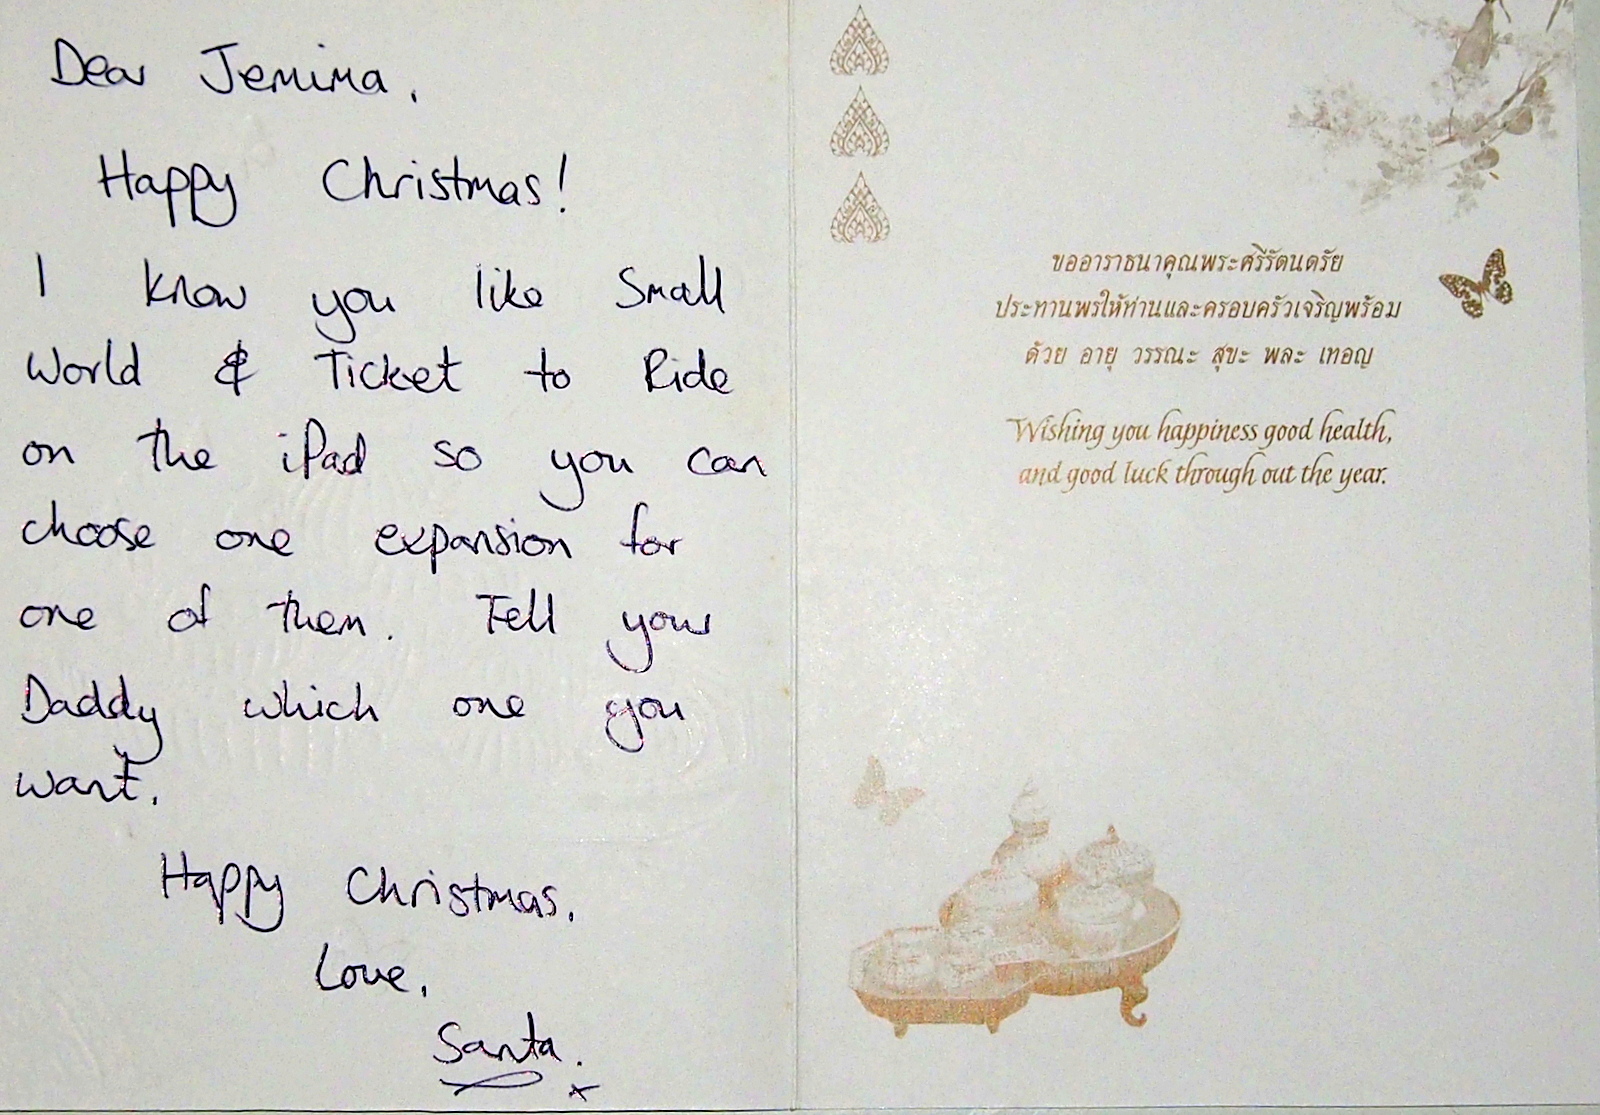 Dear Jemima,
Happy Christmas!
I know you like Small
World & Ticket to Ride
on the iPad so you can
choose one expansion for
one of them. Tell your
Daddy which one you
want.
Happy Christmas.
Love,
Santa.
x
ขออาราธนาคุณพระศรีรัตนตรัย
ประทานพรให้ท่านและครอบครัวเจริญพร้อม
ด้วย อายุ วรรณะ สุขะ พละ เทอญ
Wishing you happiness good health,
and good luck through out the year.